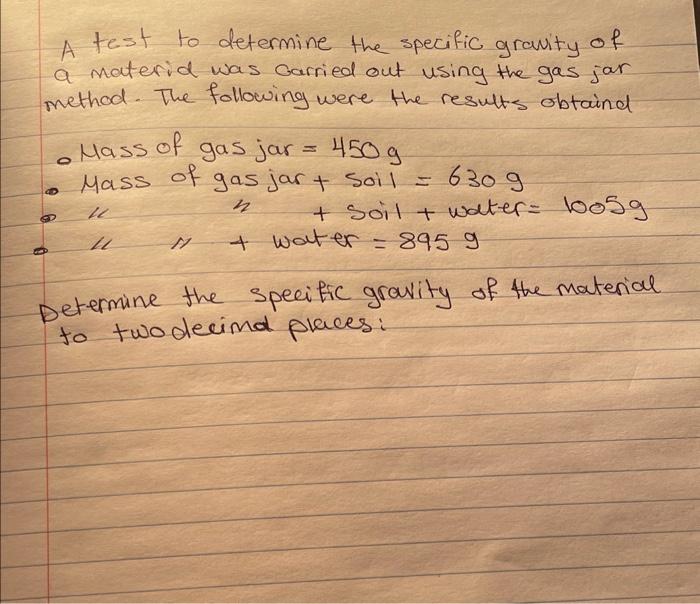 A test to determine the specific gravity of
a material was carried out using the gas jar
method. The following were the results obtaind
• Mass of gas jar = 450 g
• Mass of gas jar + Soil = 630 g
• " " + Soil + water = 1005g
• " " + water = 895 g
Determine the specific gravity of the material
to two decimal places: